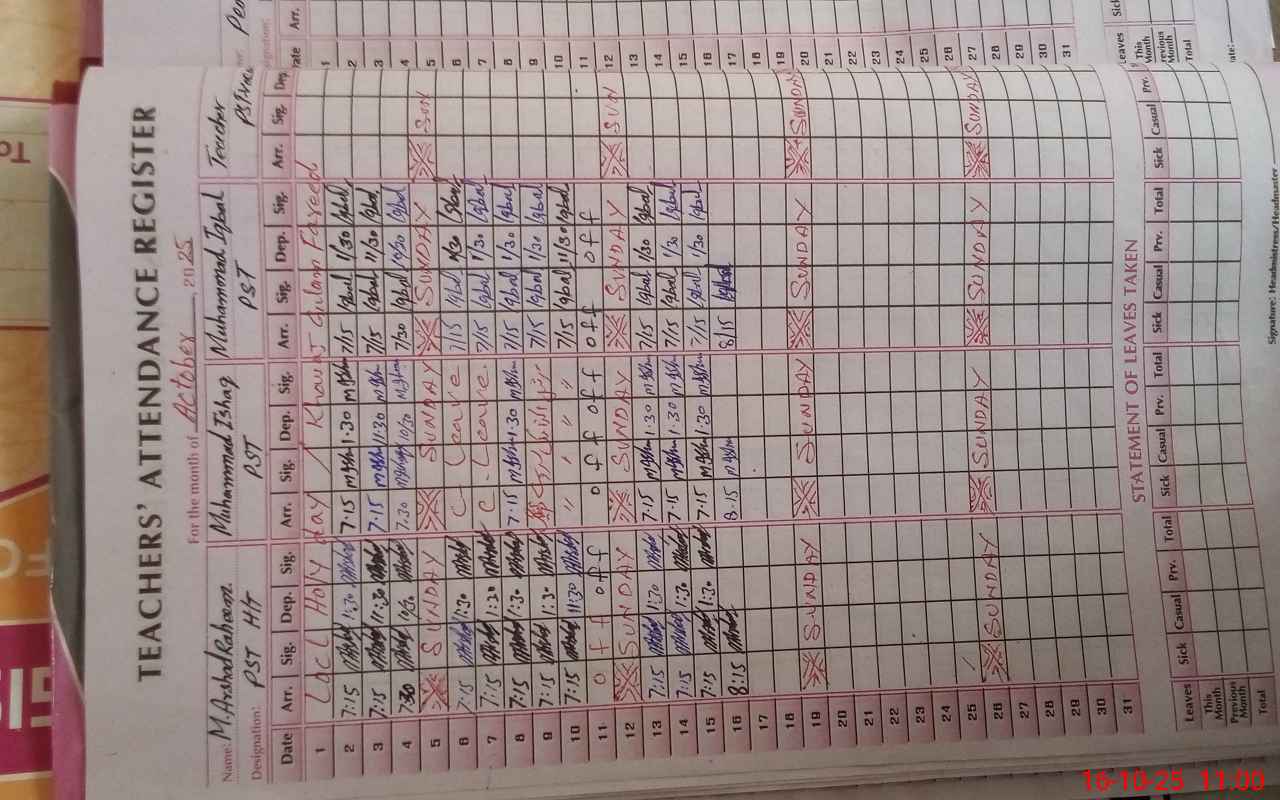 TEACHERS' ATTENDANCE REGISTER
For the month of October, 2025
Name: M. Arshad Raheem Muhammad Ishaq Muhammad Iqbal Teacher
Designation: PST H/T PST PST
Date Arr. Sig. Dep. Sig. Arr. Sig. Dep. Sig. Arr. Sig. Dep. Sig. Arr. Sig. Dep.
1 Locl Holy day / Khawaj Gulam Fareed
2 7:15 1:30 7:15 1:30 7/15 Iqbal 1/30 Iqbal
3 7:15 11:30 7:15 11:30 7/15 Iqbal 11/30 Iqbal
4 7:30 10/30 7.30 10/30 7/30 Iqbal 10/30 Iqbal
5 SUNDAY SUNDAY SUNDAY SUN
6 7:15 1:30 C- Leave 7/15 Iqbal 1/30 Iqbal
7 7:15 1:30 C- Leave 7/15 Iqbal 1/30 Iqbal
8 7:15 1:30 7:15 1:30 7/15 Iqbal 1/30 Iqbal
9 7:15 1:30 7/15 Iqbal 1/30 Iqbal
10 7:15 11:30 〃 〃 〃 〃 7/15 Iqbal 11/30 Iqbal
11 off off off off
12 SUNDAY SUNDAY SUNDAY SUN
13 7:15 1:30 7:15 1:30 7/15 Iqbal 1/30 Iqbal
14 7:15 1:30 7:15 1:30 7/15 Iqbal 1/30 Iqbal
15 7:15 1:30 7:15 1:30 7/15 Iqbal 1/30 Iqbal
16 8:15 8.15 8/15 Iqbal
17
18
19 SUNDAY SUNDAY SUNDAY SUNDAY
20
21
22
23
24
25
26 SUNDAY SUNDAY SUNDAY SUNDAY
27
28
29
30
31
STATEMENT OF LEAVES TAKEN
Leaves Sick Casual Prv. Total Sick Casual Prv. Total Sick Casual Prv. Total Sick Casual Prv.
This Month
Previous Month
Total
Signature: Headmistress/Headmaster
Arr.
1
2
3
4
5
6
7
8
9
10
11
12
13
14
15
16
17
18
19
20
21
22
23
24
25
26
27
28
29
30
31
Leaves Sick
This Month
Total
16-10-25 11:00